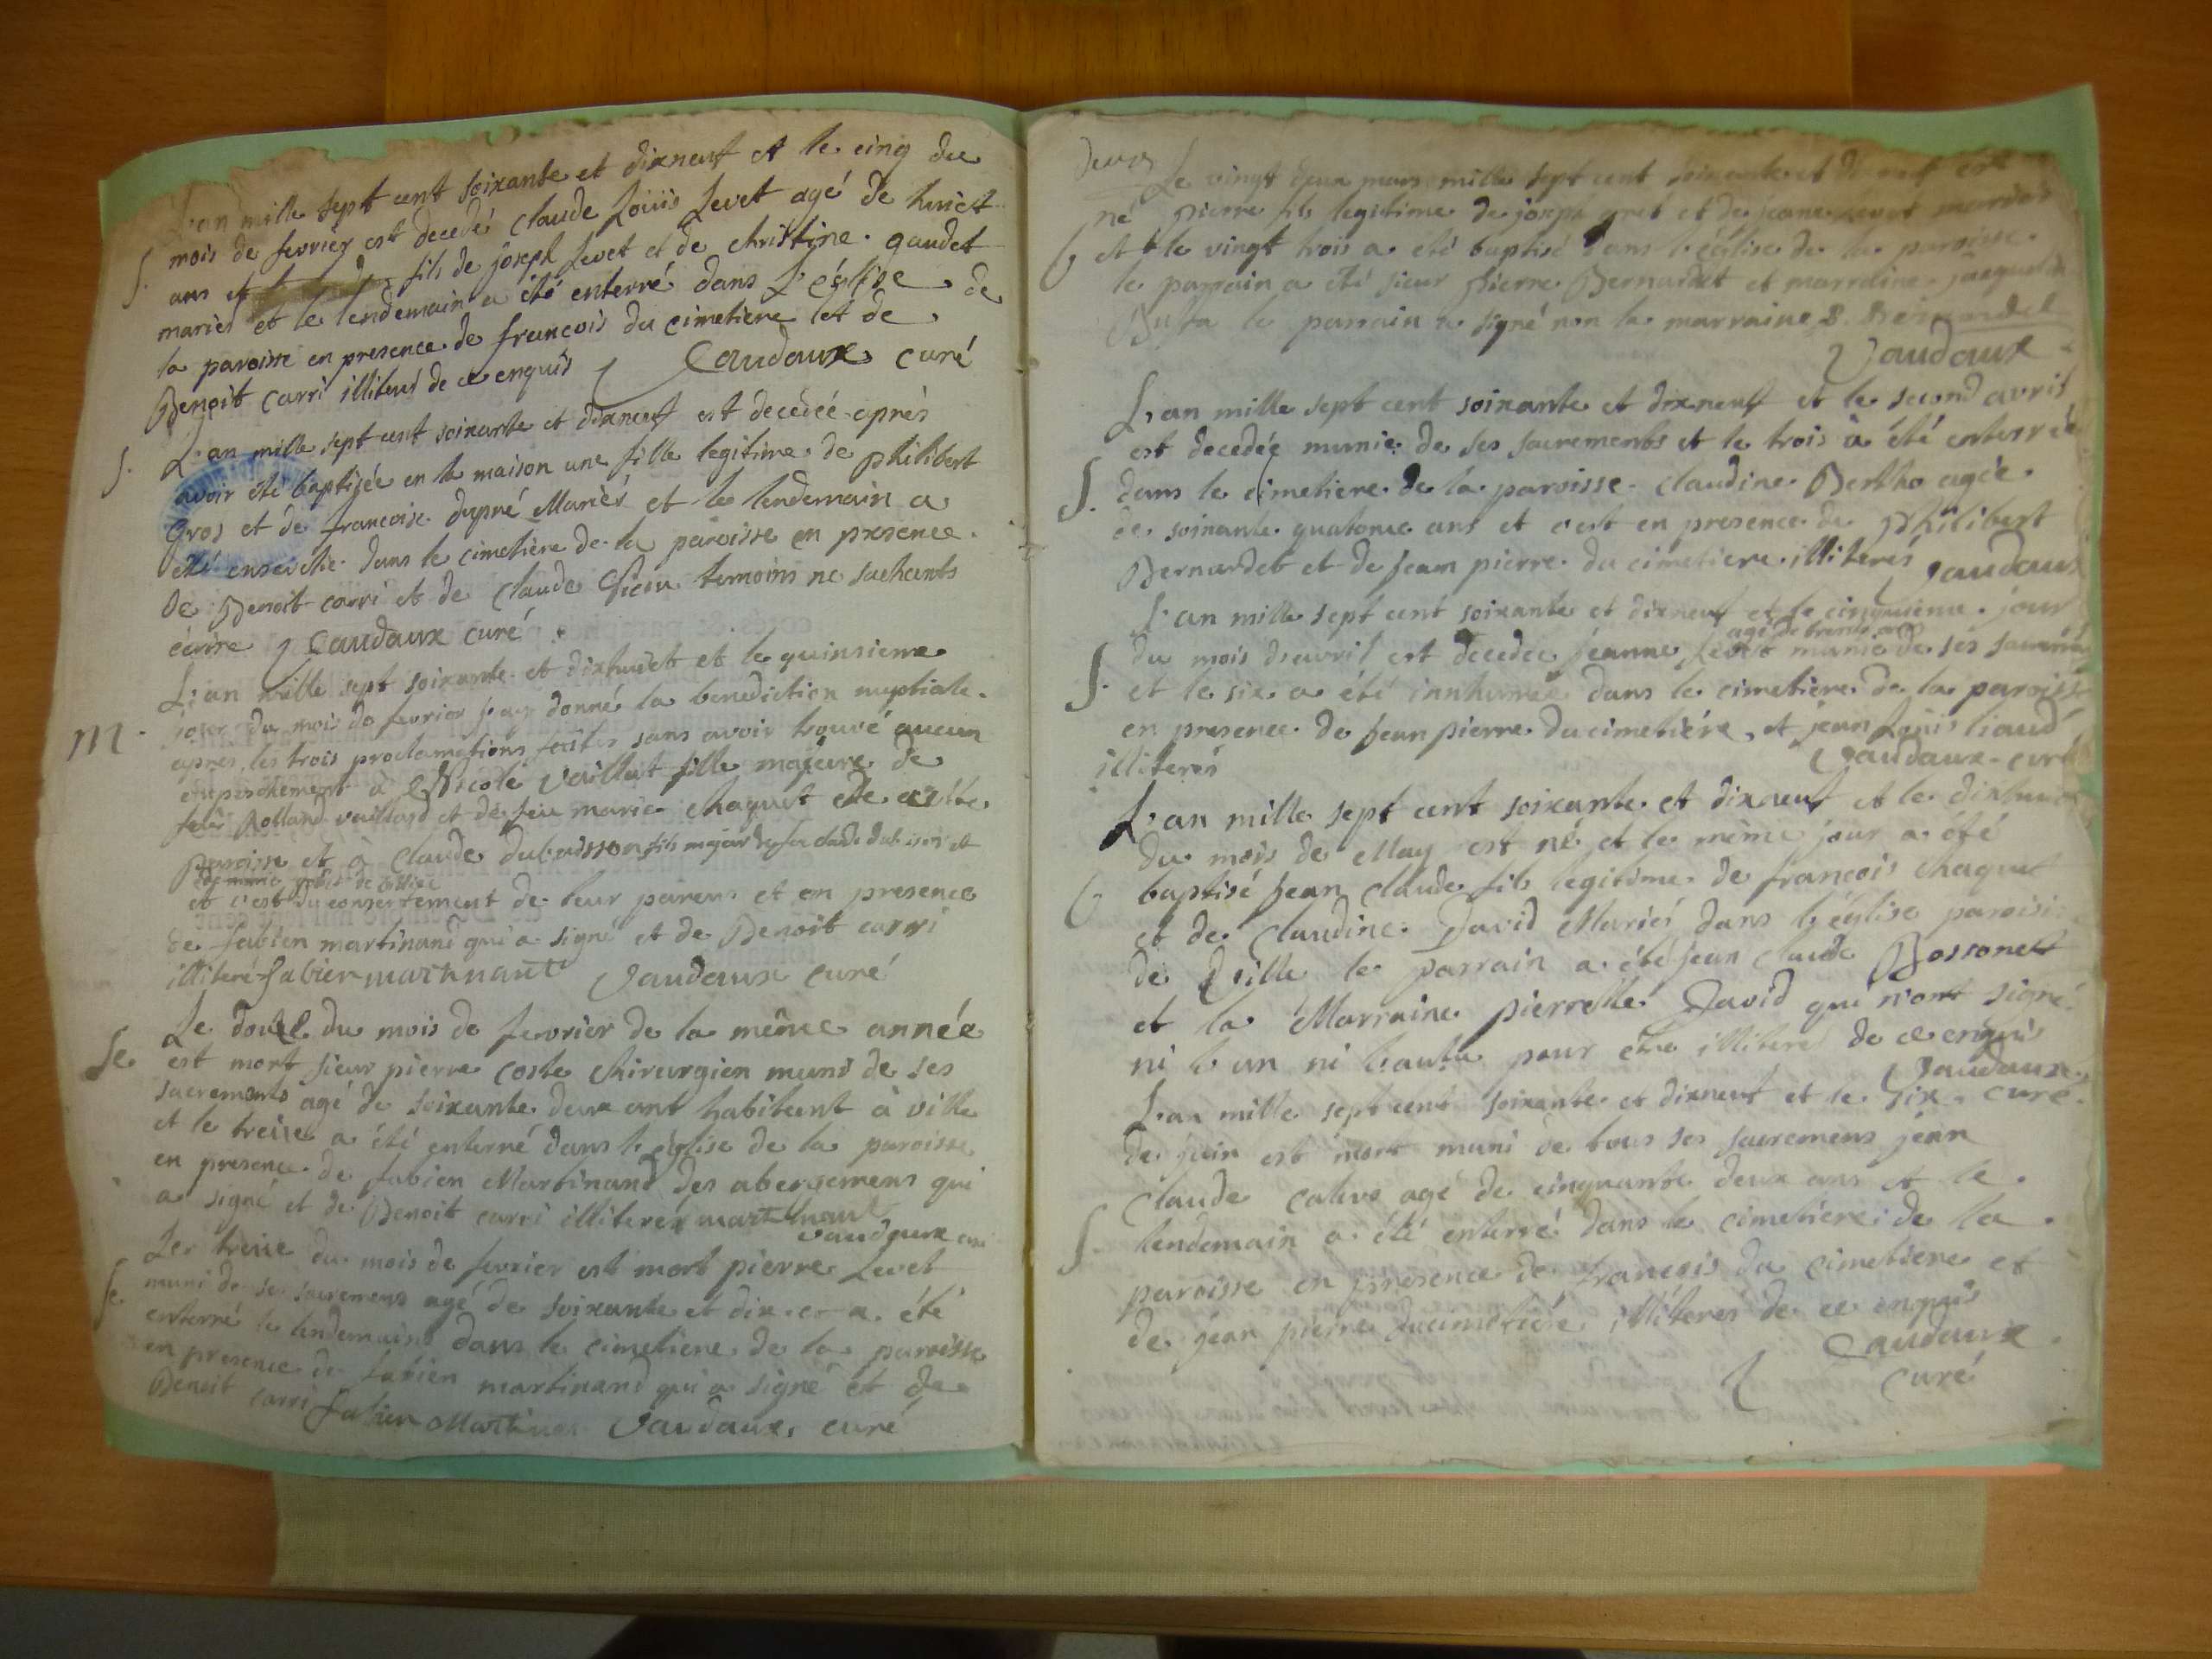 L'an mille sept cent soixante et dixneuf et le cinq du
S. mois de fevrier est decedé claude Loüis Levet agé de huict
ans et fils de joseph Levet et de christine gaudet
mariés et le lendemain a été enterré dans L'église de
la paroisse en presence de francois du cimetiere et de
Benoit Carri illiterés de ce enquis Vaudaux curé
S. L'an mille sept cent soixante et dixneuf est decedée aprés
avoir été baptisée en la maison une fille legitime de philibert
gros et de francoise dupré Mariés et le lendemain a
été ensevelie dans le cimetière de la paroisse en presence
de Benoit carri et de Claude temoins ne sachants
écrire Vaudaux curé
L'an mille sept soixante et dixhuict et le quinsieme
m. jour du mois de fevrier j'ay donné la benediction nuptiale
apres les trois proclamations faites sans avoir trouvé aucun
empeschement à Nicole Vaillat fille majeure de
feu Rolland vaillard et de feu marie chaquet de cette
paroisse et à Claude dubuisson fils majeur de feu claude dubuisson et
de
et c'est du consentement de leur parens et en presence
de fabien martinand qui a signé et de Benoit carri
illiteré fabien martinant Vaudaux curé
Le douze du mois de fevrier de la même année
Se est mort sieur pierre coste chirurgien muni de ses
sacrements agé de soixante deux ant habitant à ville
et le treize a été enterré dans l'église de la paroisse
en presence de fabien Martinand des abergemens qui
a signé et de Benoit carri illiterés martinant
vaudaux curé
Les treize du mois de fevrier est mort pierre Levet
Se muni de ses sacremens agé de soixante et dix et a été
enterré le lendemain dans le cimetiere de la paroisse
en presence de fabien martinand qui a signé et de
Benoit carri fabien Martinan Vaudaux curé
Le vingt deux mars mille sept cent soixante et dixneuf est
né pierre fils legitime de joseph et de jeane Levet mariés
b et le vingt trois a eté baptisé dans l'église de la paroisse
le parrain a été sieur pierre Bernardet et marraine
le parrain a signé non la marraine
Vaudaux
L'an mille sept cent soixante et dixneuf et le second avril
est decedée munie de ses sacrements et le trois a été enterrée
S. dans le cimetiere de la paroisse claudine Bertho agée
de soixante quatorze ans et c'est en presence de philibert
Bernardet et de jean pierre du cimetiere illiterés Vaudaux
L'an mille sept cent soixante et dixneuf et le cinquieme jour
agé de trente
S. du mois d'avril est decedée jeanne Levet munie de ses sacremens
et le six a été innhumée dans le cimetiere de la paroisse
en presence de jean pierre ducimetiére et jean Loüis liaud
illiterés Vaudaux curé
L'an mille sept cent soixante et dixneuf et le dixhuict
du mois de May est né et le même jour a été
b baptisé jean claude fils legitime de francois chaquet
et de Claudine David Mariés dans l'église paroisi
de Ville le parrain a été jean claude Bossonet
et la Marraine pierrette David qui n'ont signé
ni l'un ni l'autre pour etre illiteres de ce enquis
Vaudaux
L'an mille sept cent soixante et dixneuf et le dix curé
de juin est mort muni de tous ses sacremens jean
claude agé de cinquante deux ans et le
S. lendemain a été enterré dans le cimetiére de la
paroisse en presence de francois du cimetiere et
de jean pierre ducimetiére illiterés de ce enquis
Vaudaux
curé